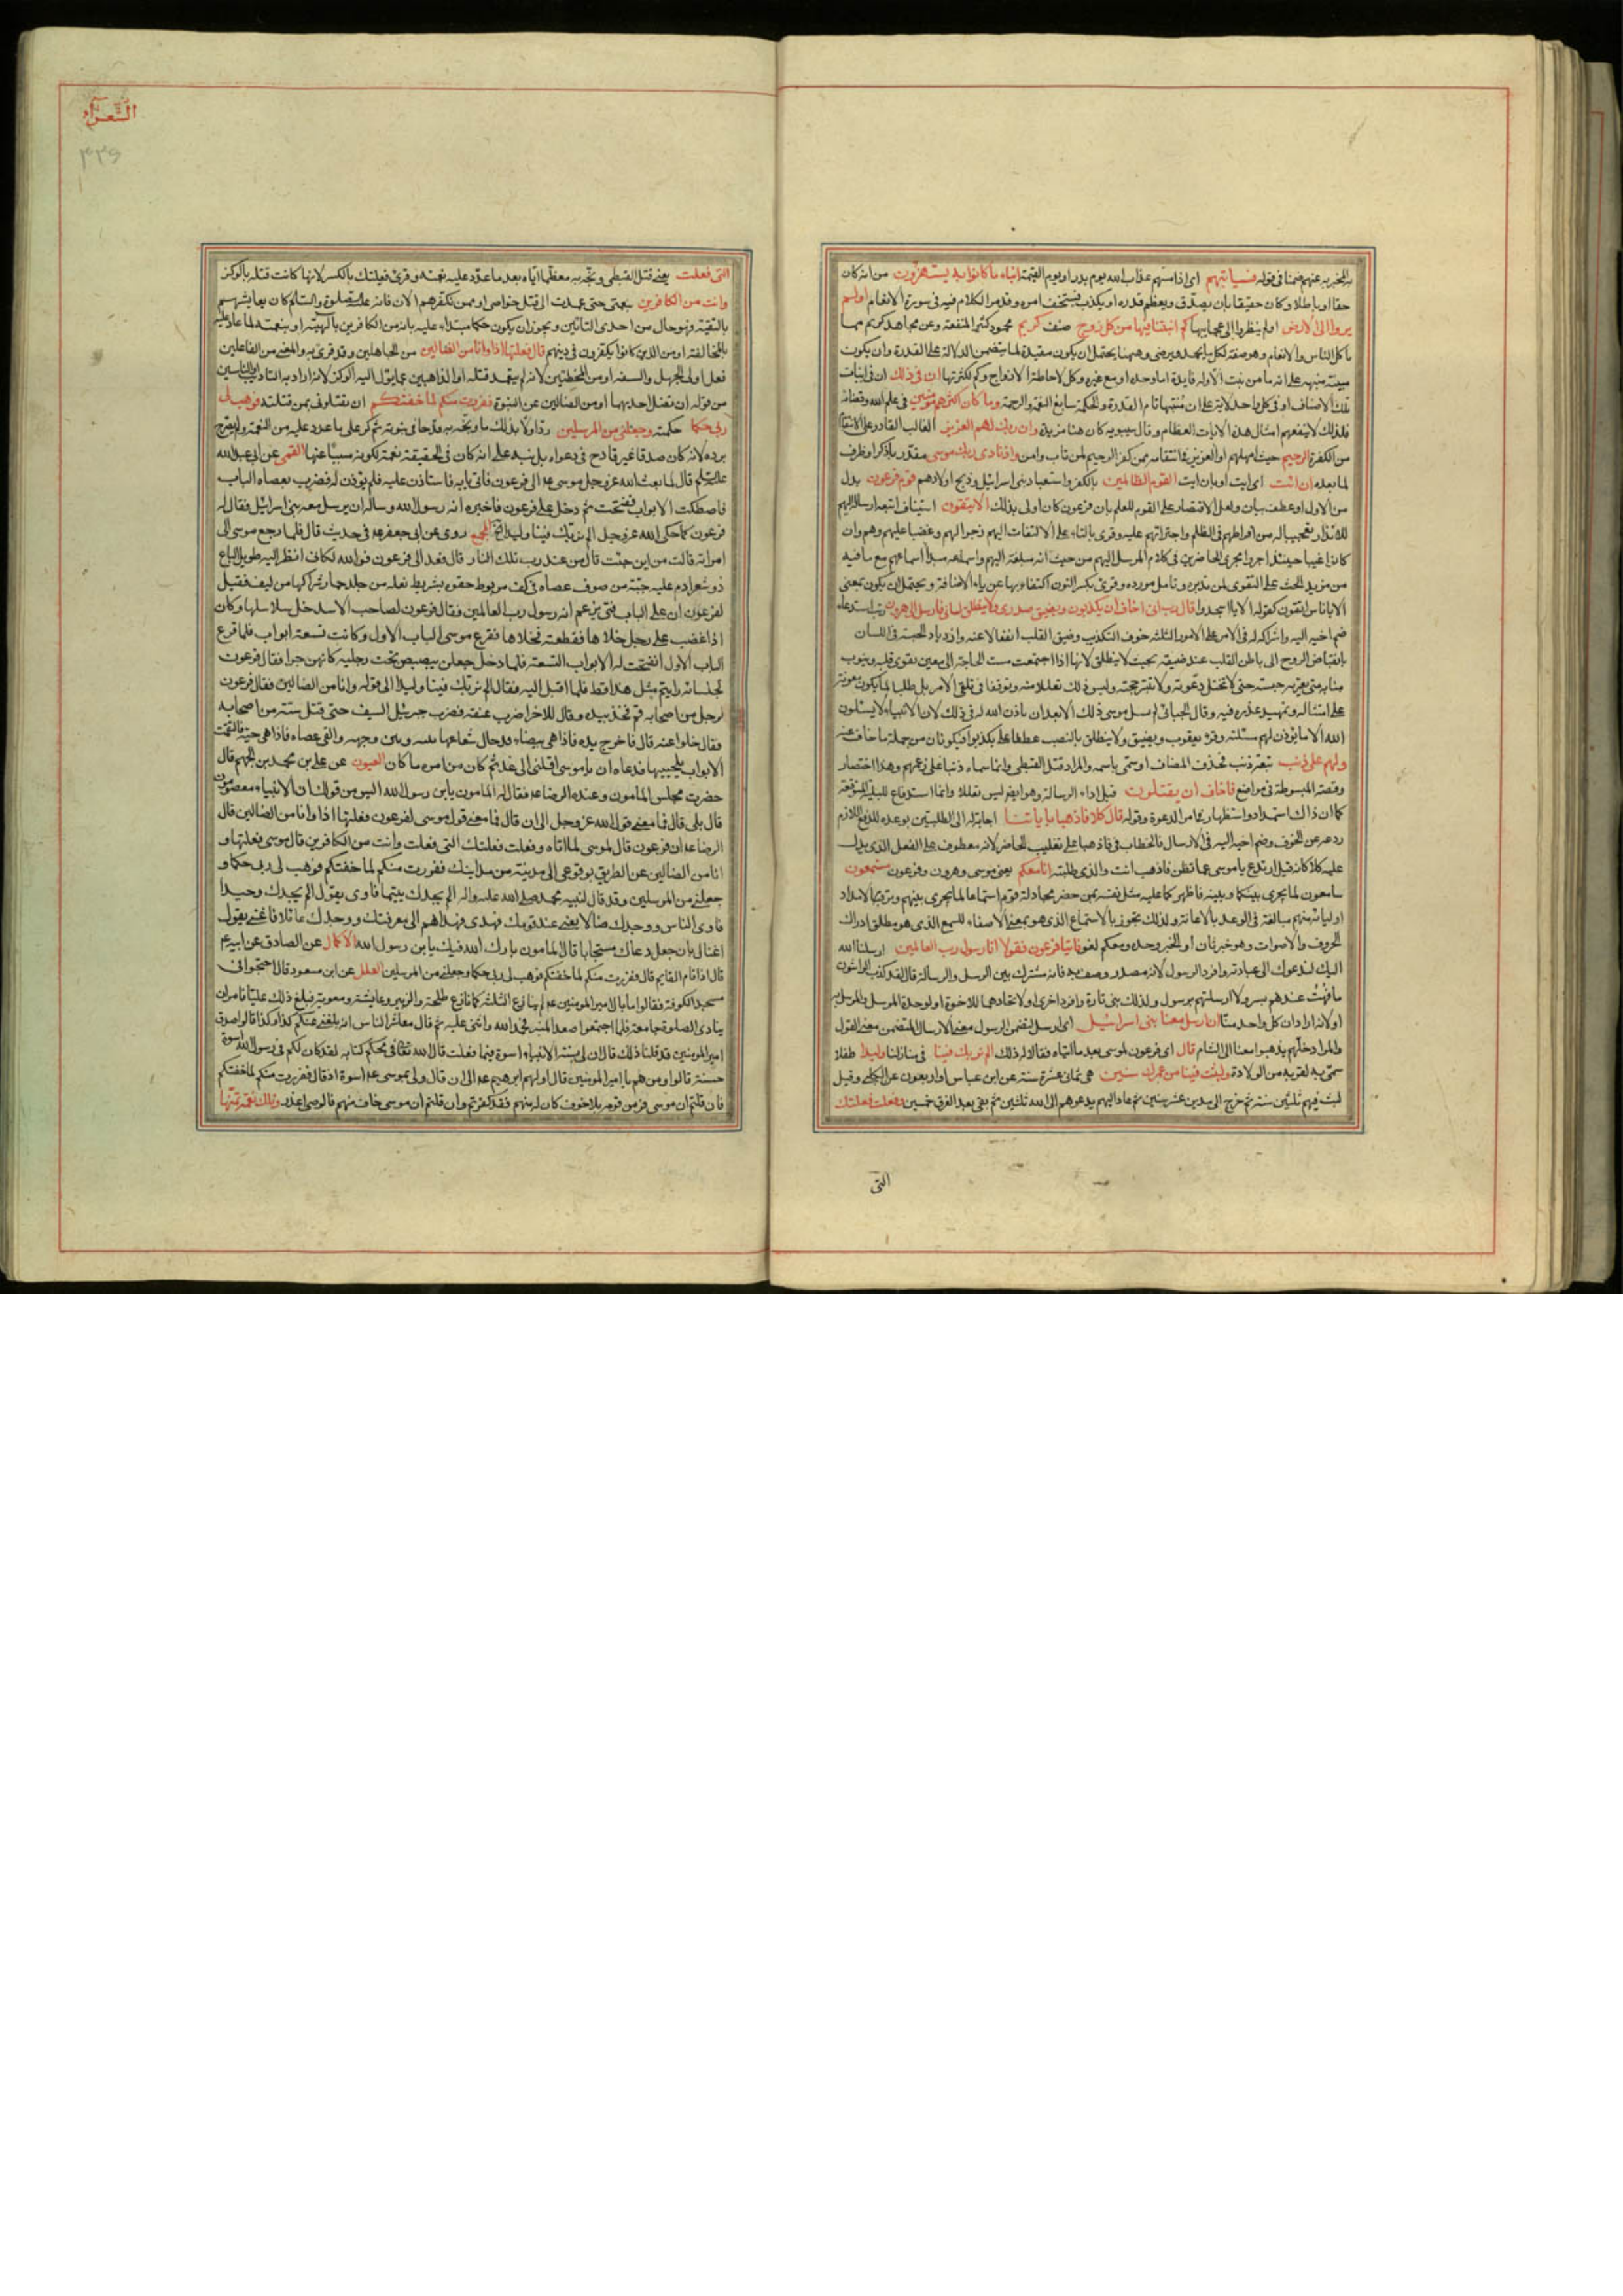 به المخبر به عنهم ضمنا في قوله فسيأتيهم اى اذا مسهم عذاب الله يوم بدر او يوم القيمة انباء ما كانوا به يستهزؤن من انه كان
حقا او باطلا وكان حقيقا بان يصدق ويعظم قدره او يكذب فيستخف امره وقد مر الكلام فيه في سورة الانعام اولم
يروا الى الارض اولم ينظروا الى عجايبها كم انبتنا فيها من كل زوج صنف كريم محمود كثير المنفعة وعن مجاهد كريم مما
ياكل الناس والانعام وهو صفة لكل ما يحمد ويرضى وههنا يحتمل ان يكون مقيدة لما يتضمن الدلالة على القدرة وان يكون
مبينة منبهة على انه ما من نبت الا وله فايدة اما وحده او مع غيره وكل لاحاطة الازواج وكم لكثرتها ان في ذلك ان في انبات
تلك الاصناف او في كل واحد لاية على ان منبتها تام القدرة والحكمة سابغ النعمة والرحمة وما كان اكثرهم مؤمنين في علم الله وقضائه
فلذلك لا ينفعهم امثال هذه الايات العظام وقال سيبويه كان هنا مزيدة وان ربك لهو العزيز الغالب القادر على الانتقام
من الكفرة الرحيم حيث امهلهم او العزيز في انتقامه ممن كفر الرحيم لمن تاب وامن واذ نادى ربك موسى مقدر باذكر او ظرف
لما بعده ان ائت اى ايت او بان ايت القوم الظالمين بالكفر واستعباد بنى اسرائيل وذبح اولادهم قوم فرعون بدل
من الاول او عطف بيان ولعل الاقتصار على القوم للعلم بان فرعون كان اولى بذلك الا يتقون استيناف اتبعه ارساله اليهم
للانذار تعجيبا له من افراطهم في الظلم واجترائهم عليه وقرى بالتاء على الالتفات اليهم زجرا لهم وغضبا عليهم وهم وان
كانوا غيبا حينئذ اجروا مجرى الحاضرين في كلام المرسل اليهم من حيث انه مبلغه اليهم واسماعه مبدأ اسماعهم مع ما فيه
من مزيد الحث على التقوى لمن تدبر وتامل مورده وقرئ بكسر النون اكتفاء بها عن ياء الاضافة ويحتمل ان يكون بمعنى
الا يا ناس اتقون كقوله الا يا اسجدوا قال رب انى اخاف ان يكذبون ويضيق صدرى ولا ينطلق لسانى فارسل الى هرون رتب استدعاء
ضم اخيه اليه واشراكه له في الامر على الامور الثلثة خوف التكذيب وضيق القلب انفعالا عنه وازدياد الحبسة في اللسان
بانقباض الروح الى باطن القلب عند ضيقه بحيث لا ينطلق لانها اذا اجتمعت مست الحاجة الى معين يقوى قلبه وينوب
منابه متى يعتريه حبسة حتى لا تختل دعوته ولا تنبتر حجته وليس ذلك تعللا منه وتوقفا في تلقى الامر بل طلبا لما يكون معونة
على امتثاله وتمهيد عذره فيه وقال الجبائى لم يسل موسى ذلك الا بعد ان باذن الله له في ذلك لان الانبياء لا يسئلون
الله الا ما يؤذن لهم مسئلته وقرء يعقوب ويضيق ولا ينطلق بالنصب عطفا على يكذبوا فيكونان من جملة ما خاف منه
ولهم على ذنب تبعة ذنب فحذف المضاف او سمى باسمه والمراد قتل القبطى وانما سماه ذنبا على زعمهم وهذا اختصار
وقصته المبسوطة في مواضع فاخاف ان يقتلون قبل اداء الرسالة وهو ايضا ليس تعللا وانما استدفاع للبلية المتوقعة
كما ان ذاك استمداد واستظهار في امر الدعوة وقوله قال كلا فاذهبا باياتنا اجابة له الى الطلبتين بوعده للدفع اللازم
ردعه عن الخوف وضم اخيه اليه في الارسال فالخطاب في فاذهبا على تغليب الحاضر لانه معطوف على الفعل الذى يدل
عليه كلا كانه قيل ارتدع يا موسى عما تظن فاذهب انت والذى طلبته انا معكم يعنى موسى وهرون وفرعون مستمعون
سامعون لما يجرى بينكما وبينه فاظهركما عليه مثل نفسه بمن حضر مجادلة قوم استماعا لما يجرى بينهم وترقبا لامداد
اوليائه منهم مبالغة في الوعد بالاعانة ولذلك تجوز بالاستماع الذى هو بمعنى الاصغاء للسمع الذى هو مطلق ادراك
الحروف والاصوات وهو خبر ثان او الخبر وحده ومعكم لغو فاتيا فرعون فقولا انا رسول رب العالمين ارسلنا الله
اليك لندعوك الى عبادته وافرد الرسول لانه مصدر وصف به فانه مشترك بين الرسل والرسالة قال لقد كذب الواشون
ما فهت عندهم بسر ولا ارسلتهم برسول ولذلك ثنى تارة وافرد اخرى او لاتحادهما للاخوة او لوحدة المرسل والمرسل به
او لانه اراد ان كل واحد منا ان ارسل معنا بنى اسرائيل اى ارسل لتضمن الرسول معنى الارسال المتضمن معنى القول
والمراد خلهم يذهبوا معنا الى الشام قال اى فرعون لموسى بعد ما اتياه فقالا له ذلك الم نربك فينا في منازلنا وليدا طفلا
سمى به لقربه من الولادة ولبثت فينا من عمرك سنين هى ثمانى عشرة سنة عن ابن عباس او اربعون عن الكلبى وقيل
لبث فيهم ثلثين سنة ثم خرج الى مدين عشر سنين ثم عاد اليهم يدعوهم الى الله ثلثين ثم بقى بعد الغرق خمسين وفعلت فعلتك
التى
الشعراء
٣٣٥
التى فعلت يعنى قتل القبطى وبخه به معظما اياه بعد ما عدد عليه نعمته وقرئ فعلتك بالكسر لانها كانت قتلة بالوكز
وانت من الكافرين بنعمتى حتى عمدت الى قتل خواصى او ممن تكفرهم الان فانه عليه الصلوة والسلام كان يعايشهم
بالتقية فهو حال من احدى التائين ويجوز ان يكون حكما مبتداء عليه بانه من الكافرين بالهيته او بنعمته لما عاد عليه
بالمخالفة او من الذين كانوا يكفرون في دينهم قال فعلتها اذا وانا من الضالين من الجاهلين وقد قرئ به والمعنى من الفاعلين
فعل اولى الجهل والسفه او من المخطئين لانه لم يتعمد قتله او الذاهبين عما يؤل اليه الوكز لانه اراد به التاديب او الناسين
من قوله ان تضل احديهما او من الضالين عن النبوة ففررت منكم لما خفتكم ان تقتلونى بمن قتلته فوهب لى
ربى حكما حكمة وجعلنى من المرسلين رد اولا بذلك ما وبخه به قدحا في نبوته ثم كر على ما عدد عليه من النعمة ولم يصرح
برده لانه كان صدقا غير قادح في دعواه بل نبه على انه كان في الحقيقة نقمة لكونه سببا عنها القمى عن ابى عبد الله
عليه السلم قال لما بعث الله عز وجل موسى عه الى فرعون فاتى بابه فاستاذن عليه فلم يؤذن له فضرب بعصاه الباب
فاصطكت الابواب ففتحت ثم دخل على فرعون فاخبره انه رسول الله وساله ان يرسل معه بنى اسرائيل فقال له
فرعون كما حكى الله عز وجل الم نربك فينا وليدا الخ المجمع روى عن ابى جعفر عه في حديث قال فلما رجع موسى الى
امراته قالت من اين جئت قال من عند رب تلك النار قال فغدا الى فرعون فوالله لكانى انظر اليه طويل الباع
ذو شعر ادم عليه جبة من صوف عصاه في كفه مربوط حقوه بشريط نعله من جلد حمار شراكها من ليف فقيل
لفرعون ان على الباب فتى يزعم انه رسول رب العالمين فقال فرعون لصاحب الاسد خل سلاسلها وكان
اذا غضب على رجل خلاها فقطعته فخلاها فقرع موسى الباب الاول وكانت تسعة ابواب فلما قرع
الباب الاول انفتحت له الابواب التسعة فلما دخل جعلن يبصبصن تحت رجليه كانهن جرا فقال فرعون
لجلسائه رايتم مثل هذا قط فلما اقبل اليه فقال الم نربك فينا وليدا الى قوله وانا من الضالين فقال فرعون
لرجل من اصحابه قم فخذ بيده وقال للاخر اضرب عنقه فضرب جبرئيل السيف حتى قتل ستة من اصحابه
فقال خلوا عنه قال فاخرج يده فاذا هى بيضاء قد حال شعاعها بينه وبين وجهه والقى عصاه فاذا هى حية فالتقمت
الايوان بلحييها فدعاه ان يا موسى اقلنى الى غد ثم كان من امره ما كان العيون عن على بن محمد بن الجهم قال
حضرت مجلس المامون وعنده الرضا عه فقال له المامون يابن رسول الله اليس من قولك ان الانبياء معصومون
قال بلى قال فما معنى قول الله عز وجل الى ان قال فما معنى قول موسى لفرعون فعلتها اذا وانا من الضالين قال
الرضا عه ان فرعون قال لموسى لما اتاه وفعلت فعلتك التى فعلت وانت من الكافرين قال موسى فعلتها و
انا من الضالين عن الطريق بوقوعى الى مدينة من مداينك ففررت منكم لما خفتكم فوهب لى ربى حكما و
جعلنى من المرسلين وقد قال لنبيه محمد صلى الله عليه واله الم يجدك يتيما فاوى يقول الم يجدك وحيدا
فاوى الناس ووجدك ضالا يعنى عند قومك فهدى فهداهم الى معرفتك ووجدك عائلا فاغنى يقول
اغناك بان جعل دعاك مستجابا قال المامون بارك الله فيك يابن رسول الله الاكمال عن الصادق عن ابيه عم
قال اذا قام القايم قال ففررت منكم لما خفتكم فوهب لى ربى حكما وجعلنى من المرسلين العلل عن ابن مسعود قال احتجوا في
مسجد الكوفة فقالوا ما بال امير المؤمنين عه لم ينازع الثلثة كما نازع طلحة والزبير وعايشة ومعوية فبلغ ذلك عليا فامر ان
ينادى الصلوة جامعة فلما اجتمعوا صعد المنبر فحمد الله واثنى عليه ثم قال معاشر الناس انه بلغنى عنكم كذا وكذا قالوا صدق
امير المؤمنين قد قلنا ذلك قال ان لى بسنة الانبياء اسوة فيما فعلت قال الله تعالى في محكم كتابه لقد كان لكم في رسول الله اسوة
حسنة قالوا ومن هم يا امير المؤمنين قال اولهم ابرهيم عه الى ان قال ولى بموسى عه اسوة اذ قال ففررت منكم لما خفتكم
فان قلتم ان موسى فر من قومه بلا خوف كان له منهم فقد كفرتم وان قلتم ان موسى خاف منهم فالوصى اعذر وتلك نعمة تمنها